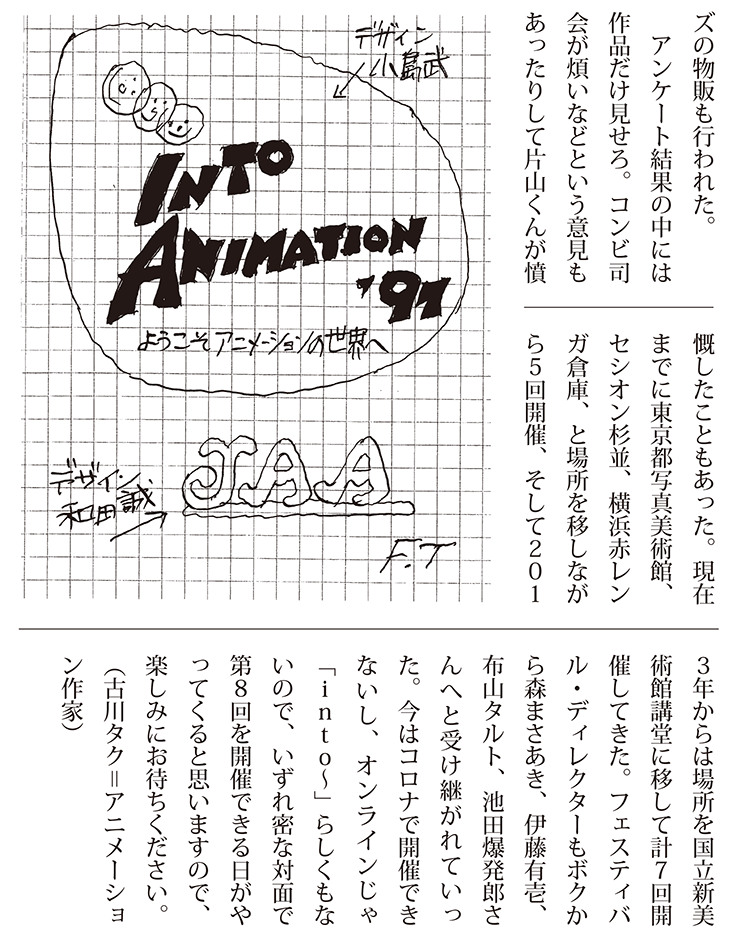 ズの物販も行われた。
　アンケート結果の中には
作品だけ見せろ。コンビ司
会が煩いなどという意見も
あったりして片山くんが憤
慨したこともあった。現在
までに東京都写真美術館、
セシオン杉並、横浜赤レン
ガ倉庫、と場所を移しなが
ら５回開催、そして２０１
３年からは場所を国立新美
術館講堂に移して計７回開
催してきた。フェスティバ
ル・ディレクターもボクか
ら森まさあき、伊藤有壱、
布山タルト、池田爆発郎さ
んへと受け継がれていっ
た。今はコロナで開催でき
ないし、オンラインじゃ
「ｉｎｔｏ〜」らしくもな
いので、いずれ密な対面で
第８回を開催できる日がや
ってくると思いますので、
楽しみにお待ちください。
（古川タク＝アニメーショ
ン作家）
デザイン
小島武
INTO
ANIMATION
'97
ようこそアニメーションの世界へ
デザイン
和田誠
JAA
F.T